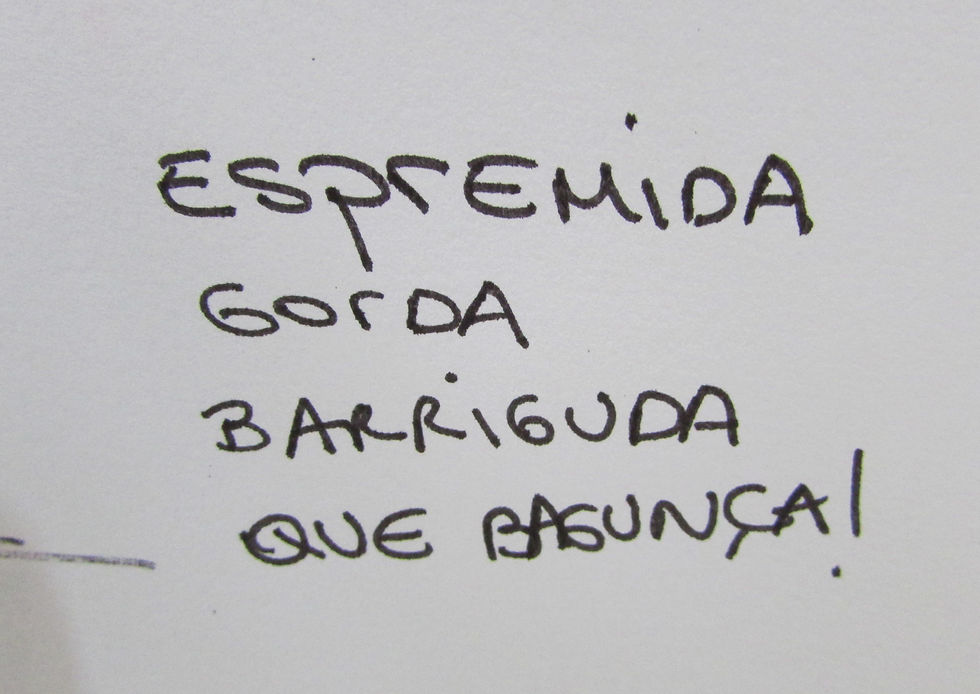 ESPrEMiDA
GOrDA
BARRiGUDA
QUE BAGUNÇA!